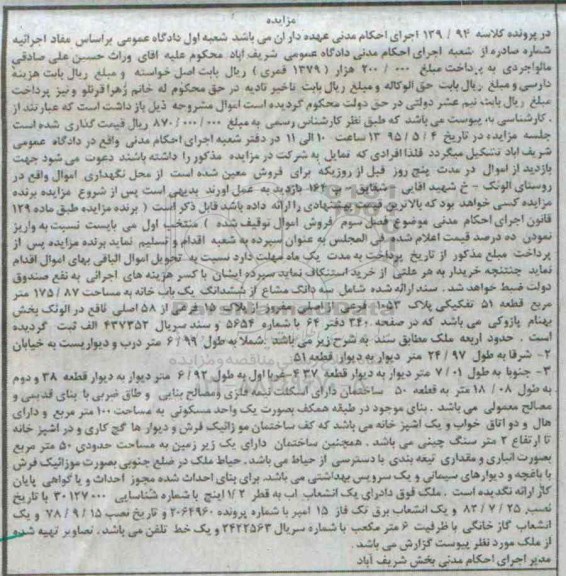 مزایده
در پرونده کلاسه ۹۴ / ۱۳۹ اجرای احکام مدنی عهده دار ان می باشد شعبه اول دادگاه عمومی براساس مفاد اجرائیه
شماره صادره از شعبه اجرای احکام مدنی دادگاه عمومی شریف اباد محکوم علیه اقای وراث حسین علی صادقی
مالواجردی به پرداخت مبلغ ۰۰۰ / ۲۰۰ هزار ( ۱۳۷۹ قمری ) ریال بابت اصل خواسته و مبلغ ریال بابت هزینه
دارسی و مبلغ ریال بابت حق الوکاله و مبلغ ریال بابت تاخیر تادیه در حق محکوم له خانم زهرا قرنلو و نیز پرداخت
مبلغ ریال بابت نیم عشر دولتی در حق دولت محکوم گردیده است اموال مشروحه ذیل باز داشت است که عبارتند از
. کارشناسی به پیوست می باشد که طبق نظر کارشناس رسمی به مبلغ ۰۰۰/ ۰۰۰/ ۸۷۰ ریال قیمت گذاری شده است
جلسه مزایده در تاریخ ۴ / ۵ / ۹۵ ۱۳ ساعت ۱۰ الی ۱۱ در دفتر شعبه اجرای احکام مدنی واقع در دادگاه عمومی
شریف اباد تشکیل میگردد فلذا افرادی که تمایل به شرکت در مزایده مذکور را داشته باشند دعوت می شود جهت
بازدید از اموال در مدت پنج روز قبل از روزیکه برای فروش معین شده است از محل نگهداری اموال واقع در
روستای الونک - خ شهید اقایی - شقایق - پ ۱۶۴ بازدید به عمل اورند بدیهی است پس از شروع مزایده برنده
مزایده کسی خواهد بود که بالاترین قیمت پیشنهادی را ارائه داده باشد قابل ذکر است ( برنده مزایده طبق ماده ۱۲۹
قانون اجرای احکام مدنی موضوع فصل سوم فروش اموال توقیف شده ) منتخب اول می بایست نسبت به واریز
نمودن ده درصد قیمت اعلام شده فی المجلس به عنوان سپرده به شعبه اقدام و تسلیم نماید برنده مزایده پس از
پرداخت مبلغ مذکور از تاریخ پرداخت به مدت یک ماه مهلت دارد نسبت به تحویل اموال الباقی بهای اموال اقدام
نماید چنتنچه خریدار به هر علتی از خرید استنکاف نماید سپرده ایشان با کسر هزینه های اجرائی به نفع صندوق
دولت ضبط خواهد شد . سند ارائه شده شامل سه دانگ مشاع از ششدانگ یک باب خانه به مساحت ۸۷ / ۱۷۵ متر
مربع قطعه ۵۱ تفکیکی پلاک ۱۰۵۳ فرعی از اصلی مفروز از پلاک ۱۵ فرعی از ۵۸ اصلی واقع در الونک بخش
بهنام پازوکی می باشد که در صفحه ۳۴۰ دفتر ۶۴ با شماره ۵۶۵۴ و سند سریال ۴۳۷۳۵۲ الف ثبت گردیده
است . حدود اربعه ملک مطابق سند به شرح زیر می باشد .شمالا به طول ۹۹/ ۶ متر درب و دیواریست به خیابان
۲- شرقا به طول ۹۷ / ۲۴ متر دیوار به دیوار قطعه ۵۱
۳- جنوبا به طول ۰۱ / ۷ متر دیوار به دیوار قطعه ۴۳۷ -غربا اول به طول ۹۲/ ۶ متر دیوار به دیوار قطعه ۳۸ و دوم
به طول ۰۸ / ۱۸ متر به قطعه ۵۰ ساختمان دارای اسکلت نیمه فلزی ومصالح بنایی و طاق ضربی با بنای قدیمی و
مصالح معمولی می باشد . بنای موجود در طبقه همکف بصورت یک واحد مسکونی به مساحت ۱۰۰ متر مربع و دارای
هال و دو اتاق خواب و یک اشپز خانه می باشد که کف ساختمان مو زائیک فرش و دیوار ها گچ کاری و در اشپز خانه
تا ارتفاع ۲ متر سنگ چینی می باشد . همچنین ساختمان دارای یک زیر زمین به مساحت حدودی ۵۰ متر مربع
بصورت انباری و مقداری تیغه بندی با دسترسی از حیاط می باشد. حیاط ملک در ضلع جنوبی بصورت موزائیک فرش
با باغچه و دیوارهای سیمانی و یک سرویس بهداشتی می باشد. برای بنای احداث شده مجوز احداث و یا گواهی پایان
کار ارائه نگدیده است . ملک فوق دادرای یک انشعاب اب به قطر ۱/۲ اینچ با شماره شناسایی ۳۰۱۲۷۰۰۰ با تاریخ
نصب, ۲۵ / ۷ / ۸۳ و یک انشعاب برق تک فاز ۱۵ امپر با شماره پرونده ۲۰۶۴۹۶۰ و تاریخ نصب ۱۵ / ۹ / ۷۸ و یک
انشعاب گاز خانگی با ظرفیت ۶ متر مکعب با شماره سریال ۲۴۲۲۵۶۳ و یک خط تلفن می باشد . تصاویر تهیه شده
از ملک مورد نظر پیوست گزارش می باشد .
مدیر اجرای احکام مدنی بخش شریف آباد